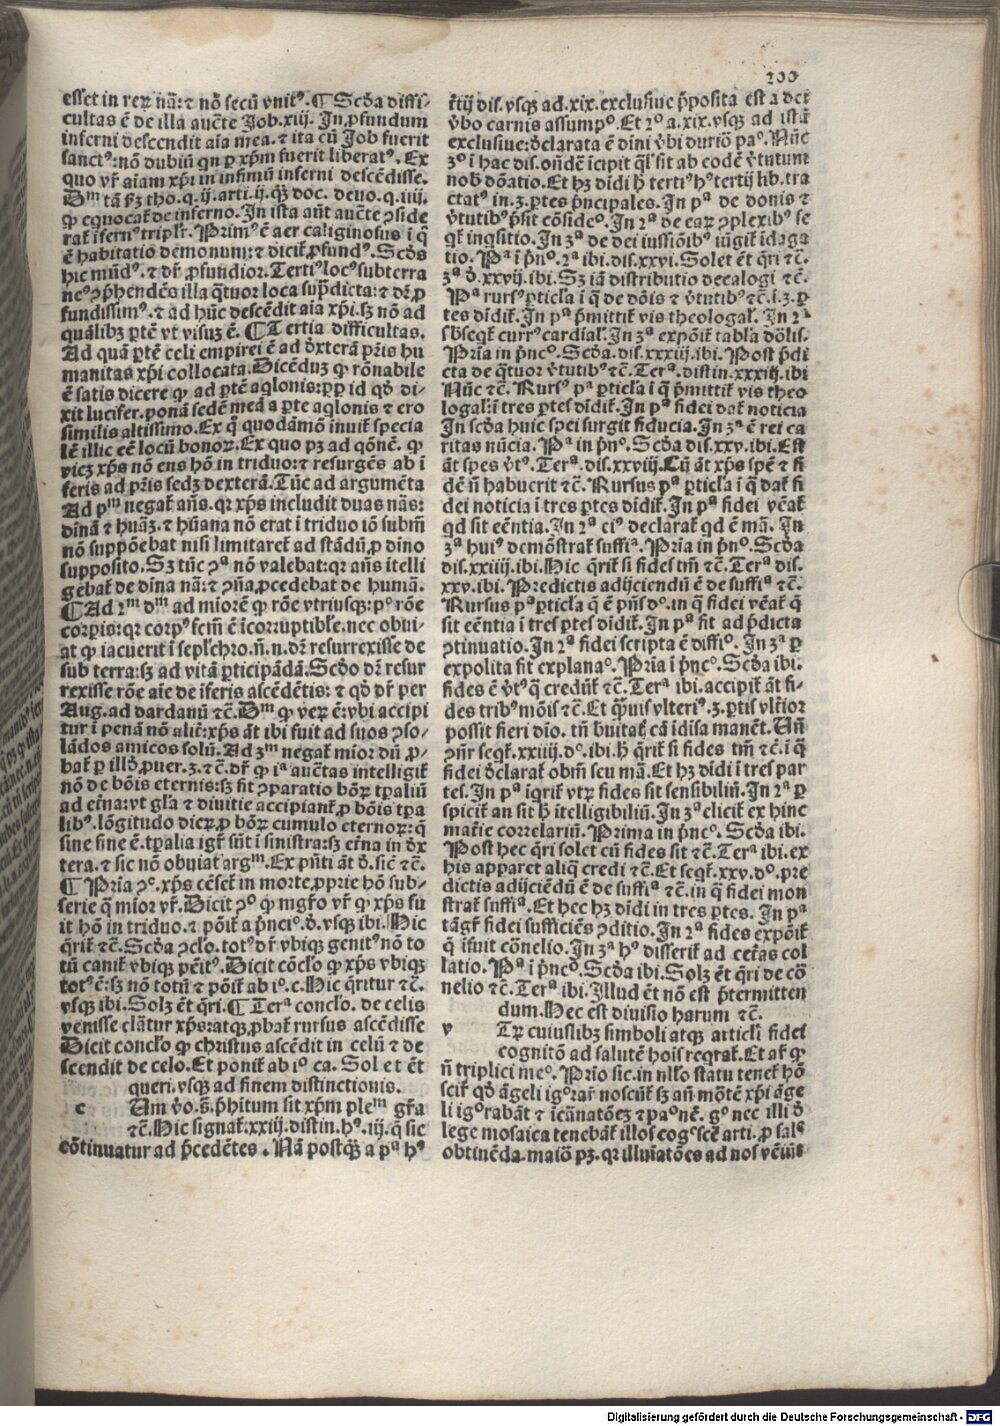 200
esset in reꝝ nā: ⁊ nō secū vnitꝰ. ¶ Scd̄a diffi-
cultas ē de illa aucte Job. xiij. In ꝓfundum
inferni descendit aīa mea. ⁊ ita cū Job fuerit
sanctꝰ: nō dubiū qn ꝑ xp̄m fuerit liberatꝰ. Ex
quo vr̄ aīam xp̄i in infimū inferni descēdisse.
Dᵐ tā ẜꝫ tho. q. ij. arti. ij. qꝫ doc. deuo. q. iiij.
ꝙ equocat̄ de inferno. In ista aūt aucte ꝯside
rat̄ īfernꝰ triplr̄. Primꝰ ē aer caliginosus ī q̄
ē habitatio demonum: ⁊ dicit̄ ꝓfundꝰ. Scd̄s
hic mūdꝰ. ⁊ dr̄ ꝓfundior. Tertiꝰ locꝰ subterra
neꝰ ꝯprhendēs illa q̄tuor loca sup̄dicta: ⁊ dr̄ ꝓ
fundissimꝰ. ⁊ ad hūc descēdit aīa xp̄i. sꝫ nō ad
quālibꝫ ꝑtē vt visuꝫ ē. ¶ Tertia difficultas.
Ad quā ꝑtē celi empirei ē ad dx̄terā pr̄is hu
manitas xp̄i collocata. Dicēduꝫ ꝙ rōnabile
ē satis dicere ꝙ ad ꝑtē aqlonis: ꝓꝑ id qd̄ di-
xit lucifer. ponā sedē meā a ꝑte aqlonis ⁊ ero
similis altissimo. Ex q̄ quodāmō inuit̄ specia
lē illic eē locū honoꝝ. Ex quo pꝫ ad qōnē. ꝙ
vicꝫ xp̄s nō ens hō in triduo: ⁊ resurgēs ab ī
feris ad pr̄is sedꝫ dexterā. Tūc ad argumēta
Ad pᵐ negat̄ añs. qr xp̄s includit duas nās:
dīnā ⁊ huāꝫ. ⁊ hūana nō erat ī triduo iō subm̄
nō suppōebat nisi limitaret̄ ad stādū ꝓ dīno
supposito. Sꝫ tūc ꝯᵃ nō valebat: qr añs itelli
gebat̄ de dīna nā: ⁊ ꝯñā ꝓcedebat de humā.
¶ Ad 2ᵐ dᵐ ad miorē ꝙ rōe vtriusqꝫ: pᵒ rōe
corꝑis: qr corpꝰ sc̄m ē īcorruptibl̄e. nec obui-
at ꝙ iacuerit ī sepl̄chro. n̄. n. dr̄ resurrexisse de
sub terra: sꝫ ad vitā ꝑticipādā. Scd̄o dr̄ resur
rexisse rōe aīe de iferis ascēdētis: ⁊ qd̄ dr̄ per
Aug. ad dardanū ⁊c̄. Dᵐ ꝙ veꝝ ē: vbi accipi
tur ī penā nō alit̄: xp̄s āt ibi fuit ad suos ꝯso-
lādos amicos solū. Ad 3ᵐ negat̄ mior dū ꝓ-
bat̄ ꝑ illd̄ ꝓuer. 3. ⁊c̄. dr̄ ꝙ iᵃ auctas intelligit̄
nō de bōis eternis: sꝫ fit ꝯparatio bōꝝ tꝑaliū
ad et̄na: vt gl̄a ⁊ diuitie accipiant̄ ꝓ bōis tꝑa
libꝰ. lōgitudo dieꝝ ꝓ bōꝝ cumulo eternoꝝ: q̄
sine fine ē. tꝑalia igr̄ sūt ī sinistra: sꝫ et̄na in dx̄
tera. ⁊ sic nō obuiat argᵐ. Ex pn̄ti āt d̄. sic ē ⁊c̄.
¶ Pria ꝯᵒ. xp̄s cēset̄ in morte ꝓprie hō sub-
serie q̄ mior vr̄. Dicit ꝯᵒ ꝙ mgr̄o vr̄ ꝙ xp̄s fu
it hō in triduo. ⁊ pōit̄ a prīciᵒ. d̄. vsqꝫ ibi. Hic
q̄rit̄ ⁊c̄. Scd̄a ꝯcl̄o. totꝰ dr̄ vbiqꝫ genitꝰ nō to
tū canit̄ vbiqꝫ pēitꝰ. Dicit cōclo ꝙ xp̄s vbiqꝫ
totꝰ ē: sꝫ nō totū ⁊ pōit̄ ab iᵒ. c. Hic qritur ⁊c̄.
vsqꝫ ibi. Solꝫ ēt qri. ¶ Terᵃ conclo. de celis
venisse clātur xp̄s: atqꝫ ꝓbat̄ rursus ascēdisse
Dicit concl̄o ꝙ christus ascēdit in celū ⁊ de
scendit de celo. Et ponit̄ ab iᵒ ca. Solet et ēt
queri. vsqꝫ ad finem distinctionis.
c Um v̄o. s̄. p̄hitum sit xp̄m pleᵐ gr̄a
⁊c̄. Hic signat̄. xxiij. distin. hꝰ. iij. q̄ sic
cōtinuatur ad p̄cedētes. Nā postqꝫ̄ a pᵃ hꝰ
t̄tij dis. vsqꝫ ad. xix. exclusiue p̄posita est a dei
v̄bo carnis assumpᵒ. Et 2ᵒ a. xix. vsqꝫ ad istā
exclusiue: d̄clarata ē dīni v̄bi duriō paᵒ. Nūc
3ᵒ ī hac dis. ondēt īcipit ql̄ sit ab eodē v̄tutum
nob̄ dōatio. Et hꝫ dīdi h̄ tertiꝰ hꝰ tertij lib. tra
ctatꝰ in. 3. ꝑtes p̄ncipales. In pᵃ de donis ⁊
v̄tutibꝰ p̄sit cōsideᵒ. In 2ᵃ de eaꝝ ꝯplexibꝰ se
qt̄ inqsitio. In 3ᵃ de dei iussiōibꝰ iūgit̄ idaga
tio. Pᵃ ī p̄nᵒ. 2ᵃ ibi. dis. xxvi. Solet ēt qri ⁊c̄.
3ᵃ d̄. xxvij. ibi. Sꝫ iā distributio decalogi ⁊c̄.
Pᵃ rursꝰ ꝑticl̄a ī q̄ de dōis ⁊ v̄tutibꝰ ⁊c̄. ī. 3. ꝑ
tes dīdit̄. In pᵃ p̄mittit̄ vis theologal̄. In 2ᵃ
sb̄seqt̄ currꝰ cardial̄. In 3ᵃ expōit̄ tabl̄a dōlis.
Pria in p̄ncᵒ. Scd̄a. dis. xxxiij. ibi. Post p̄di
cta de q̄tuor v̄tutibꝰ ⁊c̄. Terᵃ. distin. xxxiiij. ibi
Nūc ⁊c̄. Rursꝰ pᵃ ꝑticl̄a ī q̄ p̄mittit̄ vis theo
logal̄: ī tres ꝑtes dīdit̄. In pᵃ fidei dat̄ noticia
In scd̄a huic spei surgit fiducia. In 3ᵃ ē rei ca
ritas nūcia. Pᵃ in p̄nᵒ. Scd̄a dis. xxv. ibi. Est
āt spes v̄tꝰ. Terᵃ. dis. xxviij. Cū āt xp̄s spē ⁊ fi
dē n̄ habuerit ⁊c̄. Rursus pᵃ ꝑticl̄a ī q̄ dat̄ fi
dei noticia ī tres ꝑtes dīdit̄. In pᵃ fidei vēat̄
qd sit eēntia. In 2ᵃ eiꝰ declarat̄ qd ē mā. In
3ᵃ huiꝰ demōstrat̄ suffiᵃ. Pria in p̄nᵒ. Scd̄a
dis. xxiiij. ibi. Hic qrit̄ si fides tm̄ ⁊c̄. Terᵃ dis.
xxv. ibi. Predictis adijciendū ē de suffiᵃ ⁊c̄.
Rursus pᵃ ꝑticl̄a q̄ ē pn̄s dᵒ. in q̄ fidei vēat̄ q̄
sit eēntia ī tres ꝑtes dīdit̄. In pᵃ fit ad p̄dicta
ꝯtinuatio. In 2ᵃ fidei scripta ē diffiᵒ. In 3ᵃ ꝑ
expolita fit explanaᵒ. Pria ī p̄ncᵒ. Scd̄a ibi.
fides ē v̄tꝰ q̄ credūt̄ ⁊c̄. Terᵃ ibi. accipit̄ āt fi-
des tribꝰ mōis ⁊c̄. Et q̄uis vlteriꝰ. 3. ꝑtis vlt̄ior
possit fieri dīo. tn̄ buitat̄ cā īdīsa manēt. Vn̄
ꝯn̄r seqt̄. xxiiij. dᵒ. ibi. h̄ qrit̄ si fides tm̄ ⁊c̄. ī q̄
fidei d̄clarat̄ obm̄ seu mā. Et hꝫ dīdi ī tres par
tes. In pᵃ iqrit̄ vtꝝ fides sit sensibiliū. In 2ᵃ ꝑ
spicit̄ an sit h̄ itelligibiliū. In 3ᵃ elicit̄ ex hinc
mat̄ie correlariū. Prima in p̄ncᵒ. Scd̄a ibi.
Post hec qri solet cū fides sit ⁊c̄. Terᵃ ibi. ex
his apparet aliq̄ credi ⁊c̄. Et seqt̄. xxv. dᵒ. pre
dictis adijciēdū ē de suffiᵃ ⁊c̄. in q̄ fidei mon
strat̄ suffiᵃ. Et hec hꝫ dīdi in tres ꝑtes. In pᵃ
tāgt̄ fidei sufficiēs ꝯditio. In 2ᵃ fides expōit̄
q̄ īfuit cōnelio. In 3ᵃ hꝰ disserit̄ ad cet̄as col
latio. Pᵃ ī p̄ncᵒ. Scd̄a ibi. Solꝫ ēt qri de cō
nelio ⁊c̄. Terᵃ ibi. Illud ēt nō est p̄termitten
dum. Hec est diuisio harum ⁊c̄.
v Tꝝ cuiuslibꝫ simboli atqꝫ articl̄i fidei
cognitō ad salutē hoīs reqrat̄. Et ar̄ ꝙ
n̄ triplici meᵒ. Prīo sic. in nl̄lo statu tenet̄ hō
scir̄ qd̄ āgeli igꝛar̄ noscūt̄ sꝫ añ mōtē xp̄i āge
li igꝛabāt ⁊ icānatōeꝫ ⁊ paᵒnē. gᵒ nec illi d̄
lege mosaica tenebāt̄ illos cogᵒscē arti. ꝓ salᵉ
obtinēda. maiō pꝫ. qr illuīatōes ad nos vēiūt
Digitalisierung gefördert durch die Deutsche Forschungsgemeinschaft - DFG